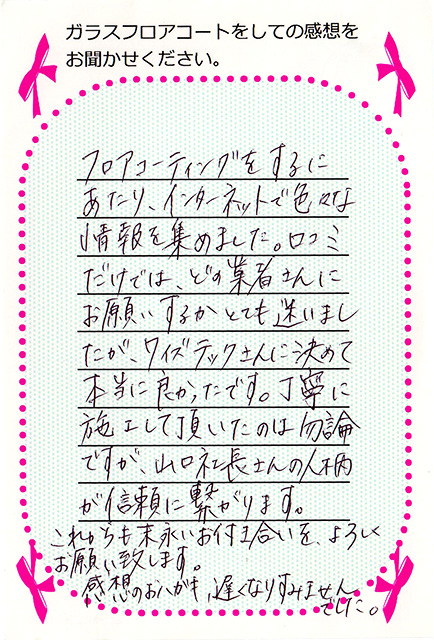 ガラスフロアコートをしての感想を
お聞かせください。
フロアコーティングをするに
あたり、インターネットで色々な
情報を集めました。口コミ
だけでは、どの業者さんに
お願いするかとても迷いまし
たが、ワイズテックさんに決めて
本当に良かったです。丁寧に
施工して頂いたのは勿論
ですが、山口社長さんの人柄
が信頼に繋がります。
これからも末永いお付き合いを、よろしく
お願い致します。
感想のおハガキ、遅くなりすみません
でした。